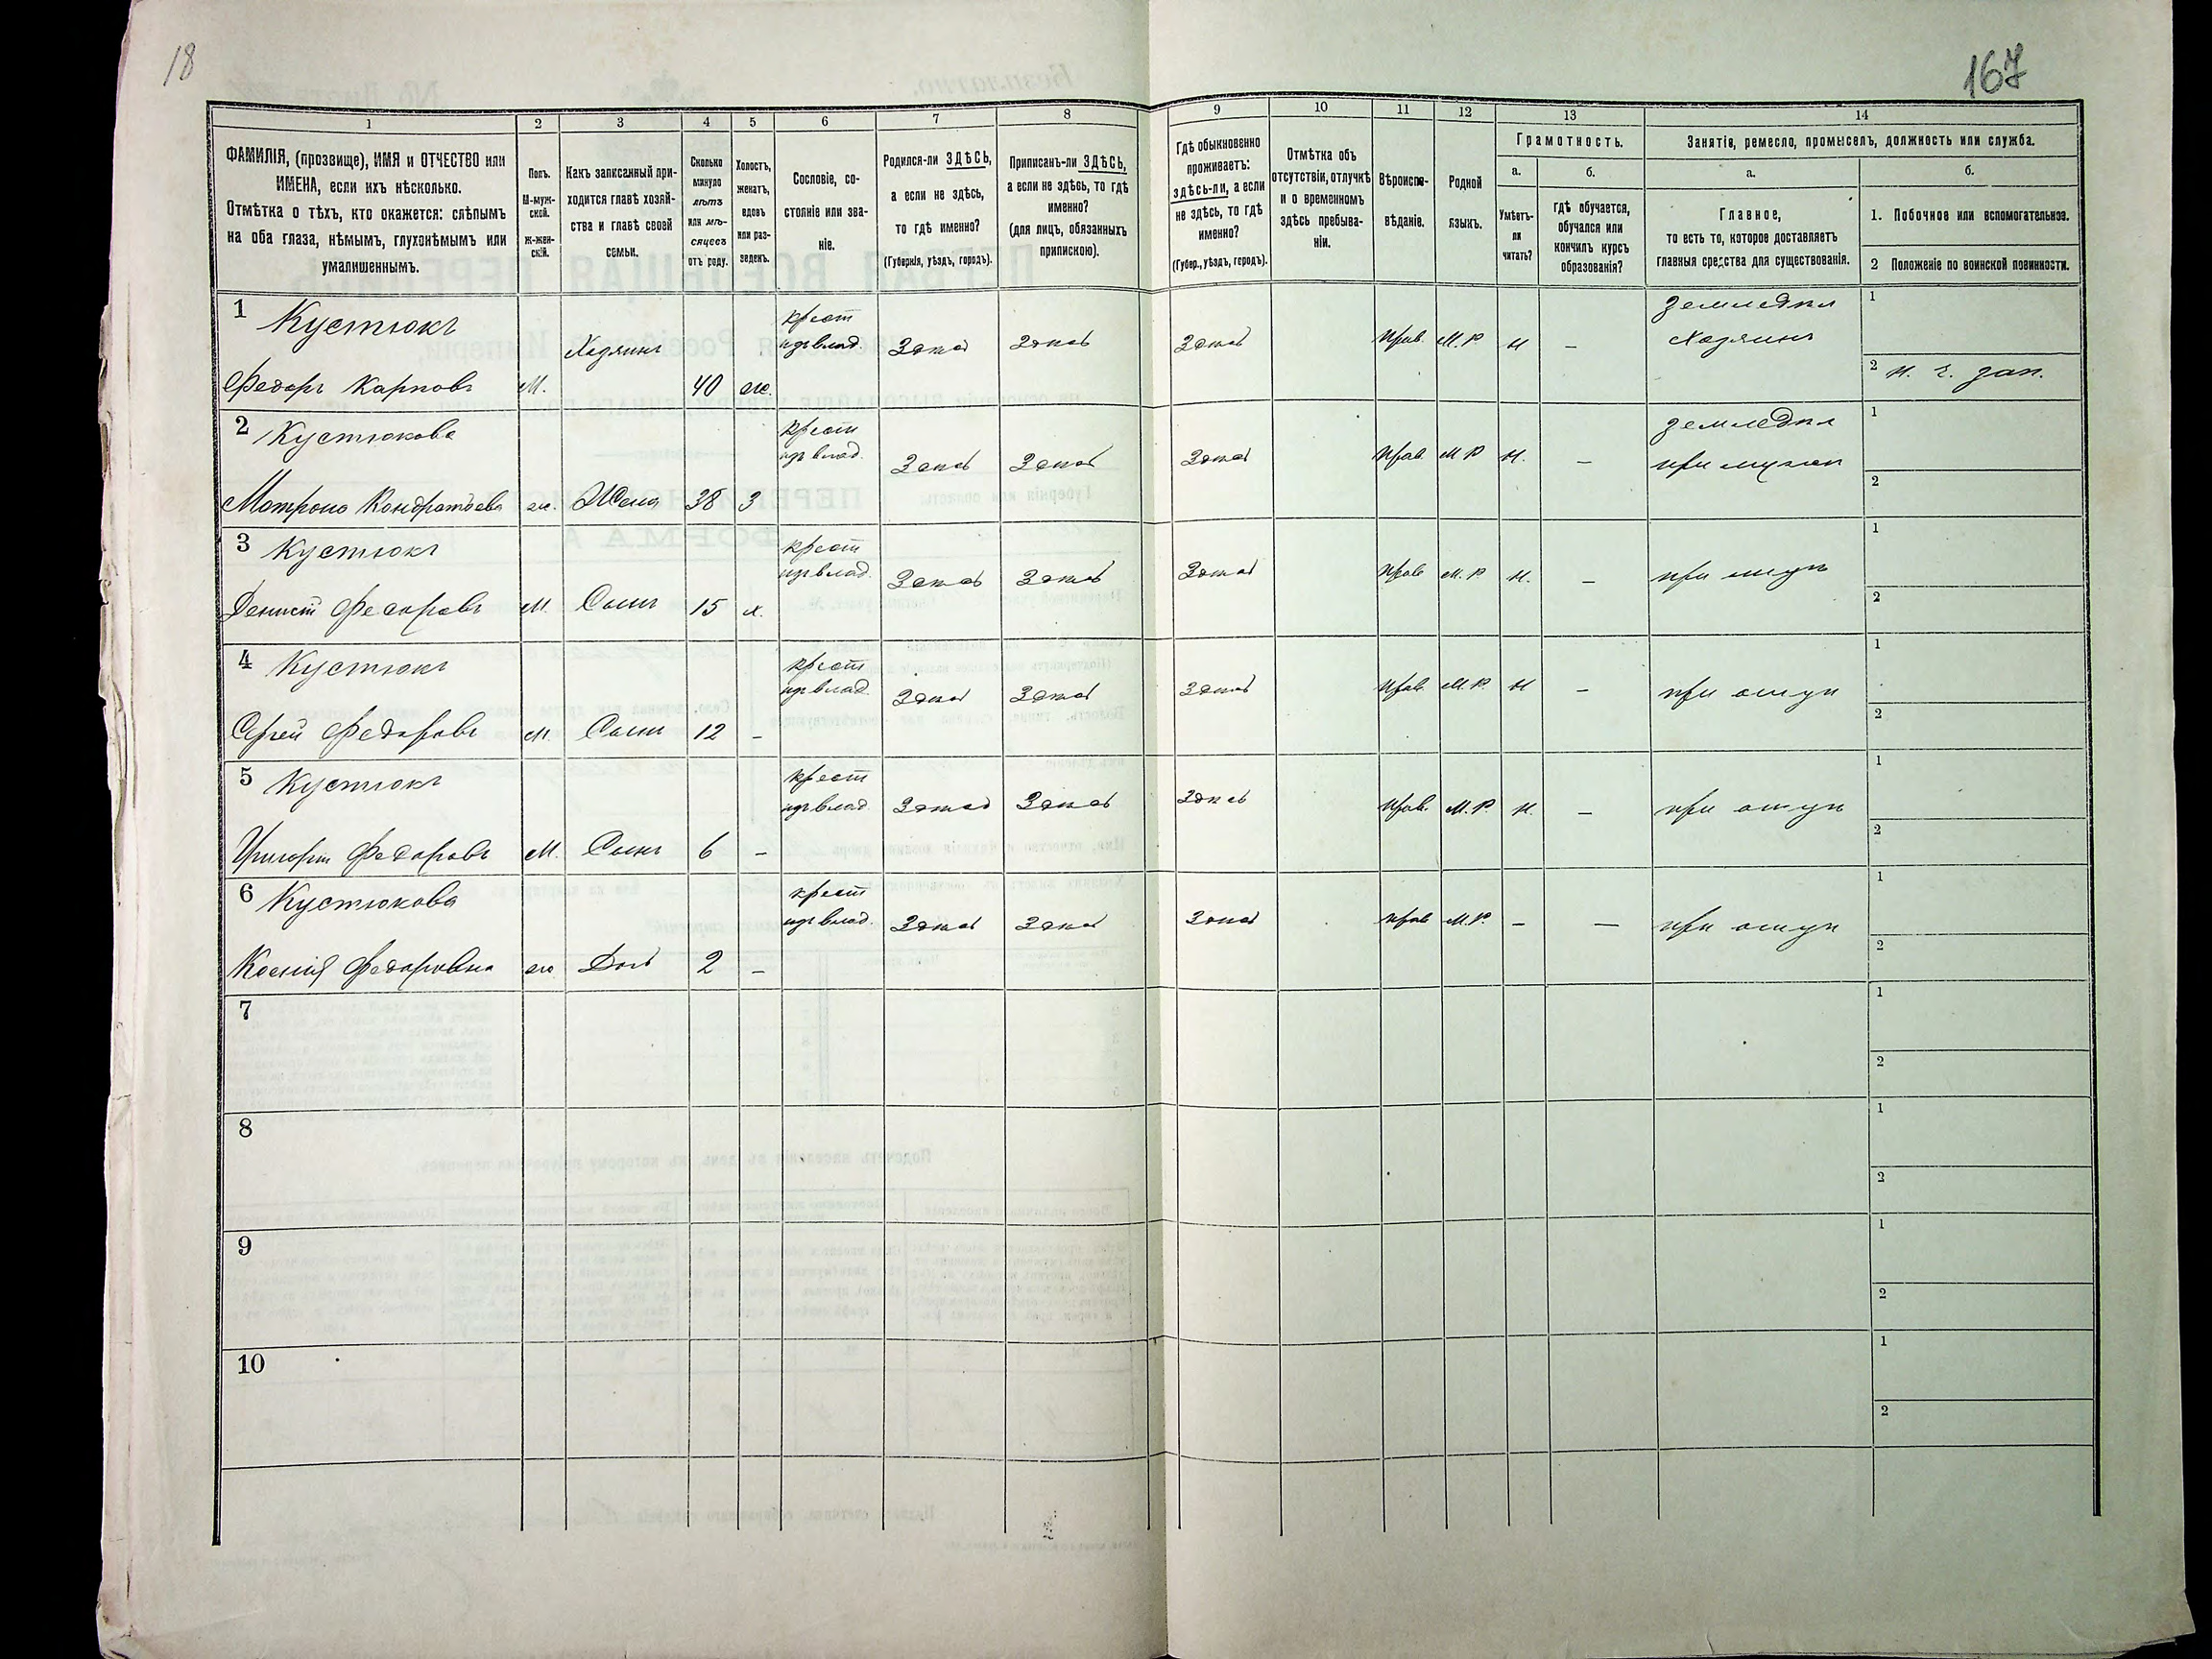 18
167
1
2
3
4
5
6
7
8
9
10
11
12
13
14
ФАМИЛІЯ, (прозвище), ИМЯ и ОТЧЕСТВО или
ИМЕНА, если ихъ нѣсколько.
Отмѣтка о тѣхъ, кто окажется: слѣпымъ
на оба глаза, нѣмымъ, глухонѣмымъ или
умалишеннымъ.
Полъ.
М-муж-
ской.
Ж-жен-
скій.
Какъ записанный при-
ходится главѣ хозяй-
ства и главѣ своей
семьи.
Сколько
минуло
лѣтъ
или мѣ-
сяцевъ
отъ роду.
Холостъ,
женатъ,
вдовъ
или раз-
веденъ.
Сословіе, со-
стояніе или зва-
ніе.
Родился-ли ЗДѢСЬ,
а если не здѣсь,
то гдѣ именно?
(Губернія, уѣздъ, городъ).
Приписанъ-ли ЗДѢСЬ,
а если не здѣсь, то гдѣ
именно?
(для лицъ, обязанныхъ
припискою).
Гдѣ обыкновенно
проживаетъ:
здѣсь-ли, а если
не здѣсь, то гдѣ
именно?
(Губер., уѣздъ, городъ).
Отмѣтка объ
отсутствіи, отлучкѣ
и о временномъ
здѣсь пребыва-
ніи.
Вѣроиспо-
вѣданіе.
Родной
языкъ.
Грамотность.
а.
Умѣетъ-
ли
читать?
б.
Гдѣ обучается,
обучался или
кончилъ курсъ
образованія?
Занятіе, ремесло, промыселъ, должность или служба.
а.
Главное,
то есть то, которое доставляетъ
главныя средства для существованія.
б.
1. Побочное или вспомогательное.
2 Положеніе по воинской повинности.
1 Кустюкъ
Федоръ Карповъ М. Хозяинъ 40 ж. крест изъ влад. Здѣсь Здѣсь Здѣсь Прав. М.Р. Н – земледѣл Хозяинъ 1
2 н. ч. зап.
2 Кустюкова
Матрона Кондратьева ж. Жена 38 З крест изъ влад. Здѣсь Здѣсь Здѣсь Прав. М Р Н. – земледѣл при мужѣ 1
2
3 Кустюкъ
Денисъ Федоровъ М. Сынъ 15 х. крест изъ влад. Здѣсь Здѣсь Здѣсь Прав М.Р Н. – при отцѣ 1
2
4 Кустюкъ
Сергѣй Федоровъ М. Сынъ 12 – крест изъ влад. Здѣсь Здѣсь Здѣсь Прав. М.Р. Н – при отцѣ 1
2
5 Кустюкъ
Григорій Федоровъ М. Сынъ 6 – крест изъ влад. Здѣсь Здѣсь Здѣсь Прав. М.Р. Н. – при отцѣ 1
2
6 Кустюкова
Ксенія Федоровна ж. Дочь 2 – крест изъ влад. Здѣсь Здѣсь Здѣсь Прав М.Р. – – при отцѣ 1
2
7 1
2
8 1
2
9 1
2
10 1
2